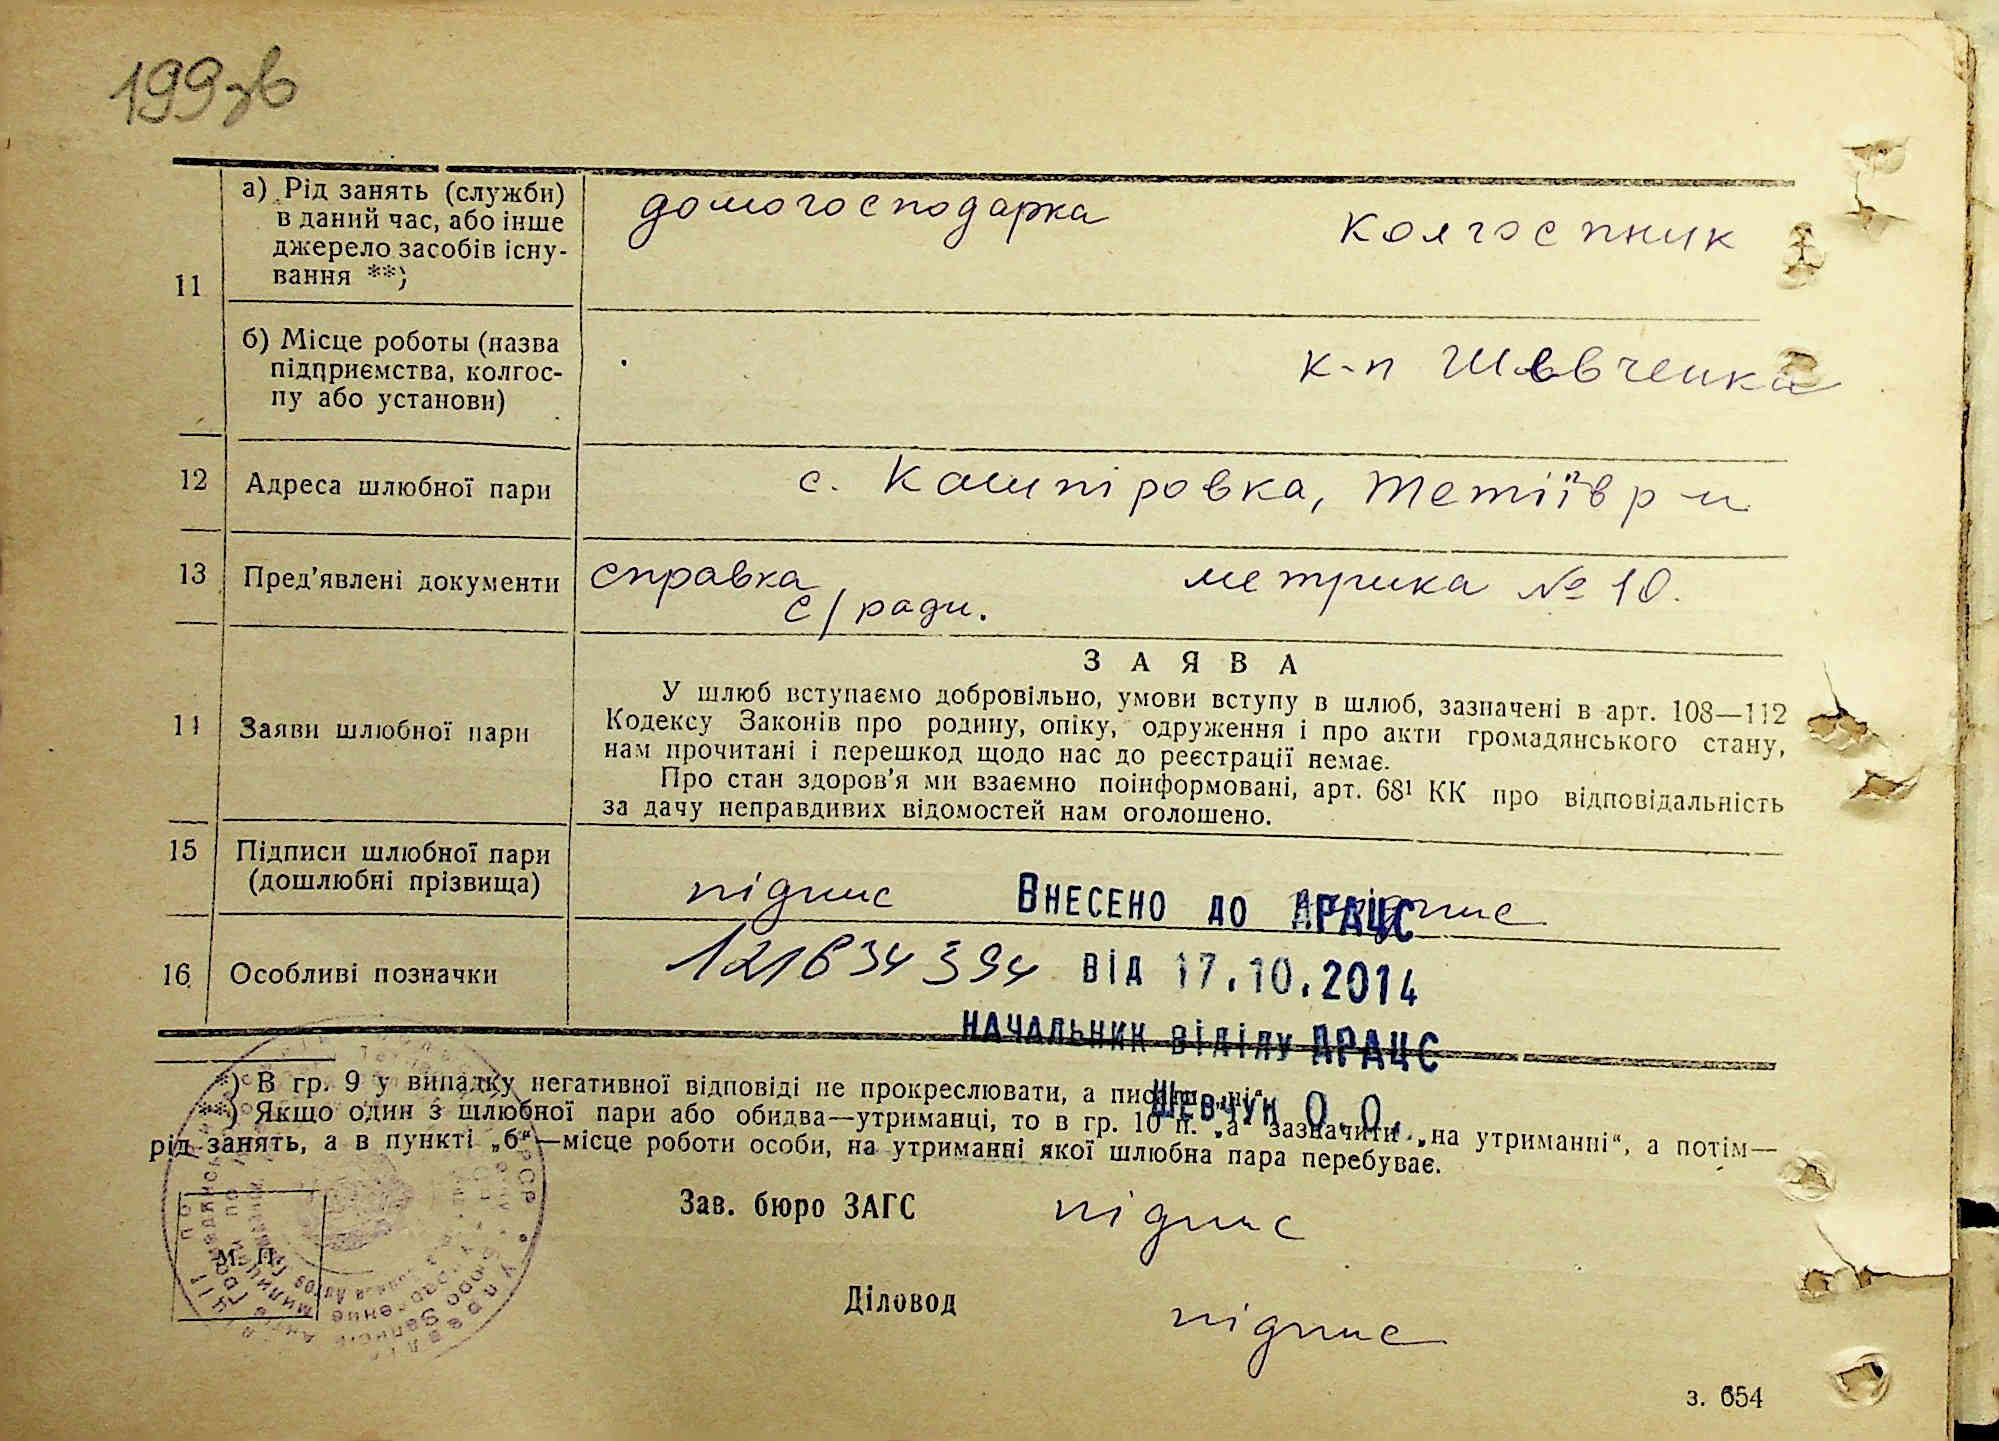 199зв
а) Рід занять (служби)
в даний час, або інше
джерело засобів існу-
вання **)
домогосподарка колгоспник
11
б) Місце роботи (назва
підприємства, колгос-
пу або установи)
к-п Шевченка
12 Адреса шлюбної пари с. Кашпіровка, Тетіїв р-н
13 Пред'явлені документи справка метрика № 10.
с/ради.
14 Заяви шлюбної пари
ЗАЯВА
У шлюб вступаємо добровільно, умови вступу в шлюб, зазначені в арт. 108—112
Кодексу Законів про родину, опіку, одруження і про акти громадянського стану,
нам прочитані і перешкод щодо нас до реєстрації немає.
Про стан здоров'я ми взаємно поінформовані, арт. 68¹ КК про відповідальність
за дачу неправдивих відомостей нам оголошено.
15 Підписи шлюбної пари
(дошлюбні прізвища)
підпис підпис
Внесено до АРАЦС
16 Особливі позначки
від 17.10.2014
НАЧАЛЬНИК ВІДІЛУ АРАЦС
Шевчук О.О.
*) В гр. 9 у випадку негативної відповіді не прокреслювати, а писати „ні“.
**) Якщо один з шлюбної пари або обидва—утриманці, то в гр. 10 п. „а“ зазначити „на утриманні“, а потім—
рід занять, а в пункті „б“—місце роботи особи, на утриманні якої шлюбна пара перебуває.
Зав. бюро ЗАГС підпис
М. П.
Діловод підпис
з. 654